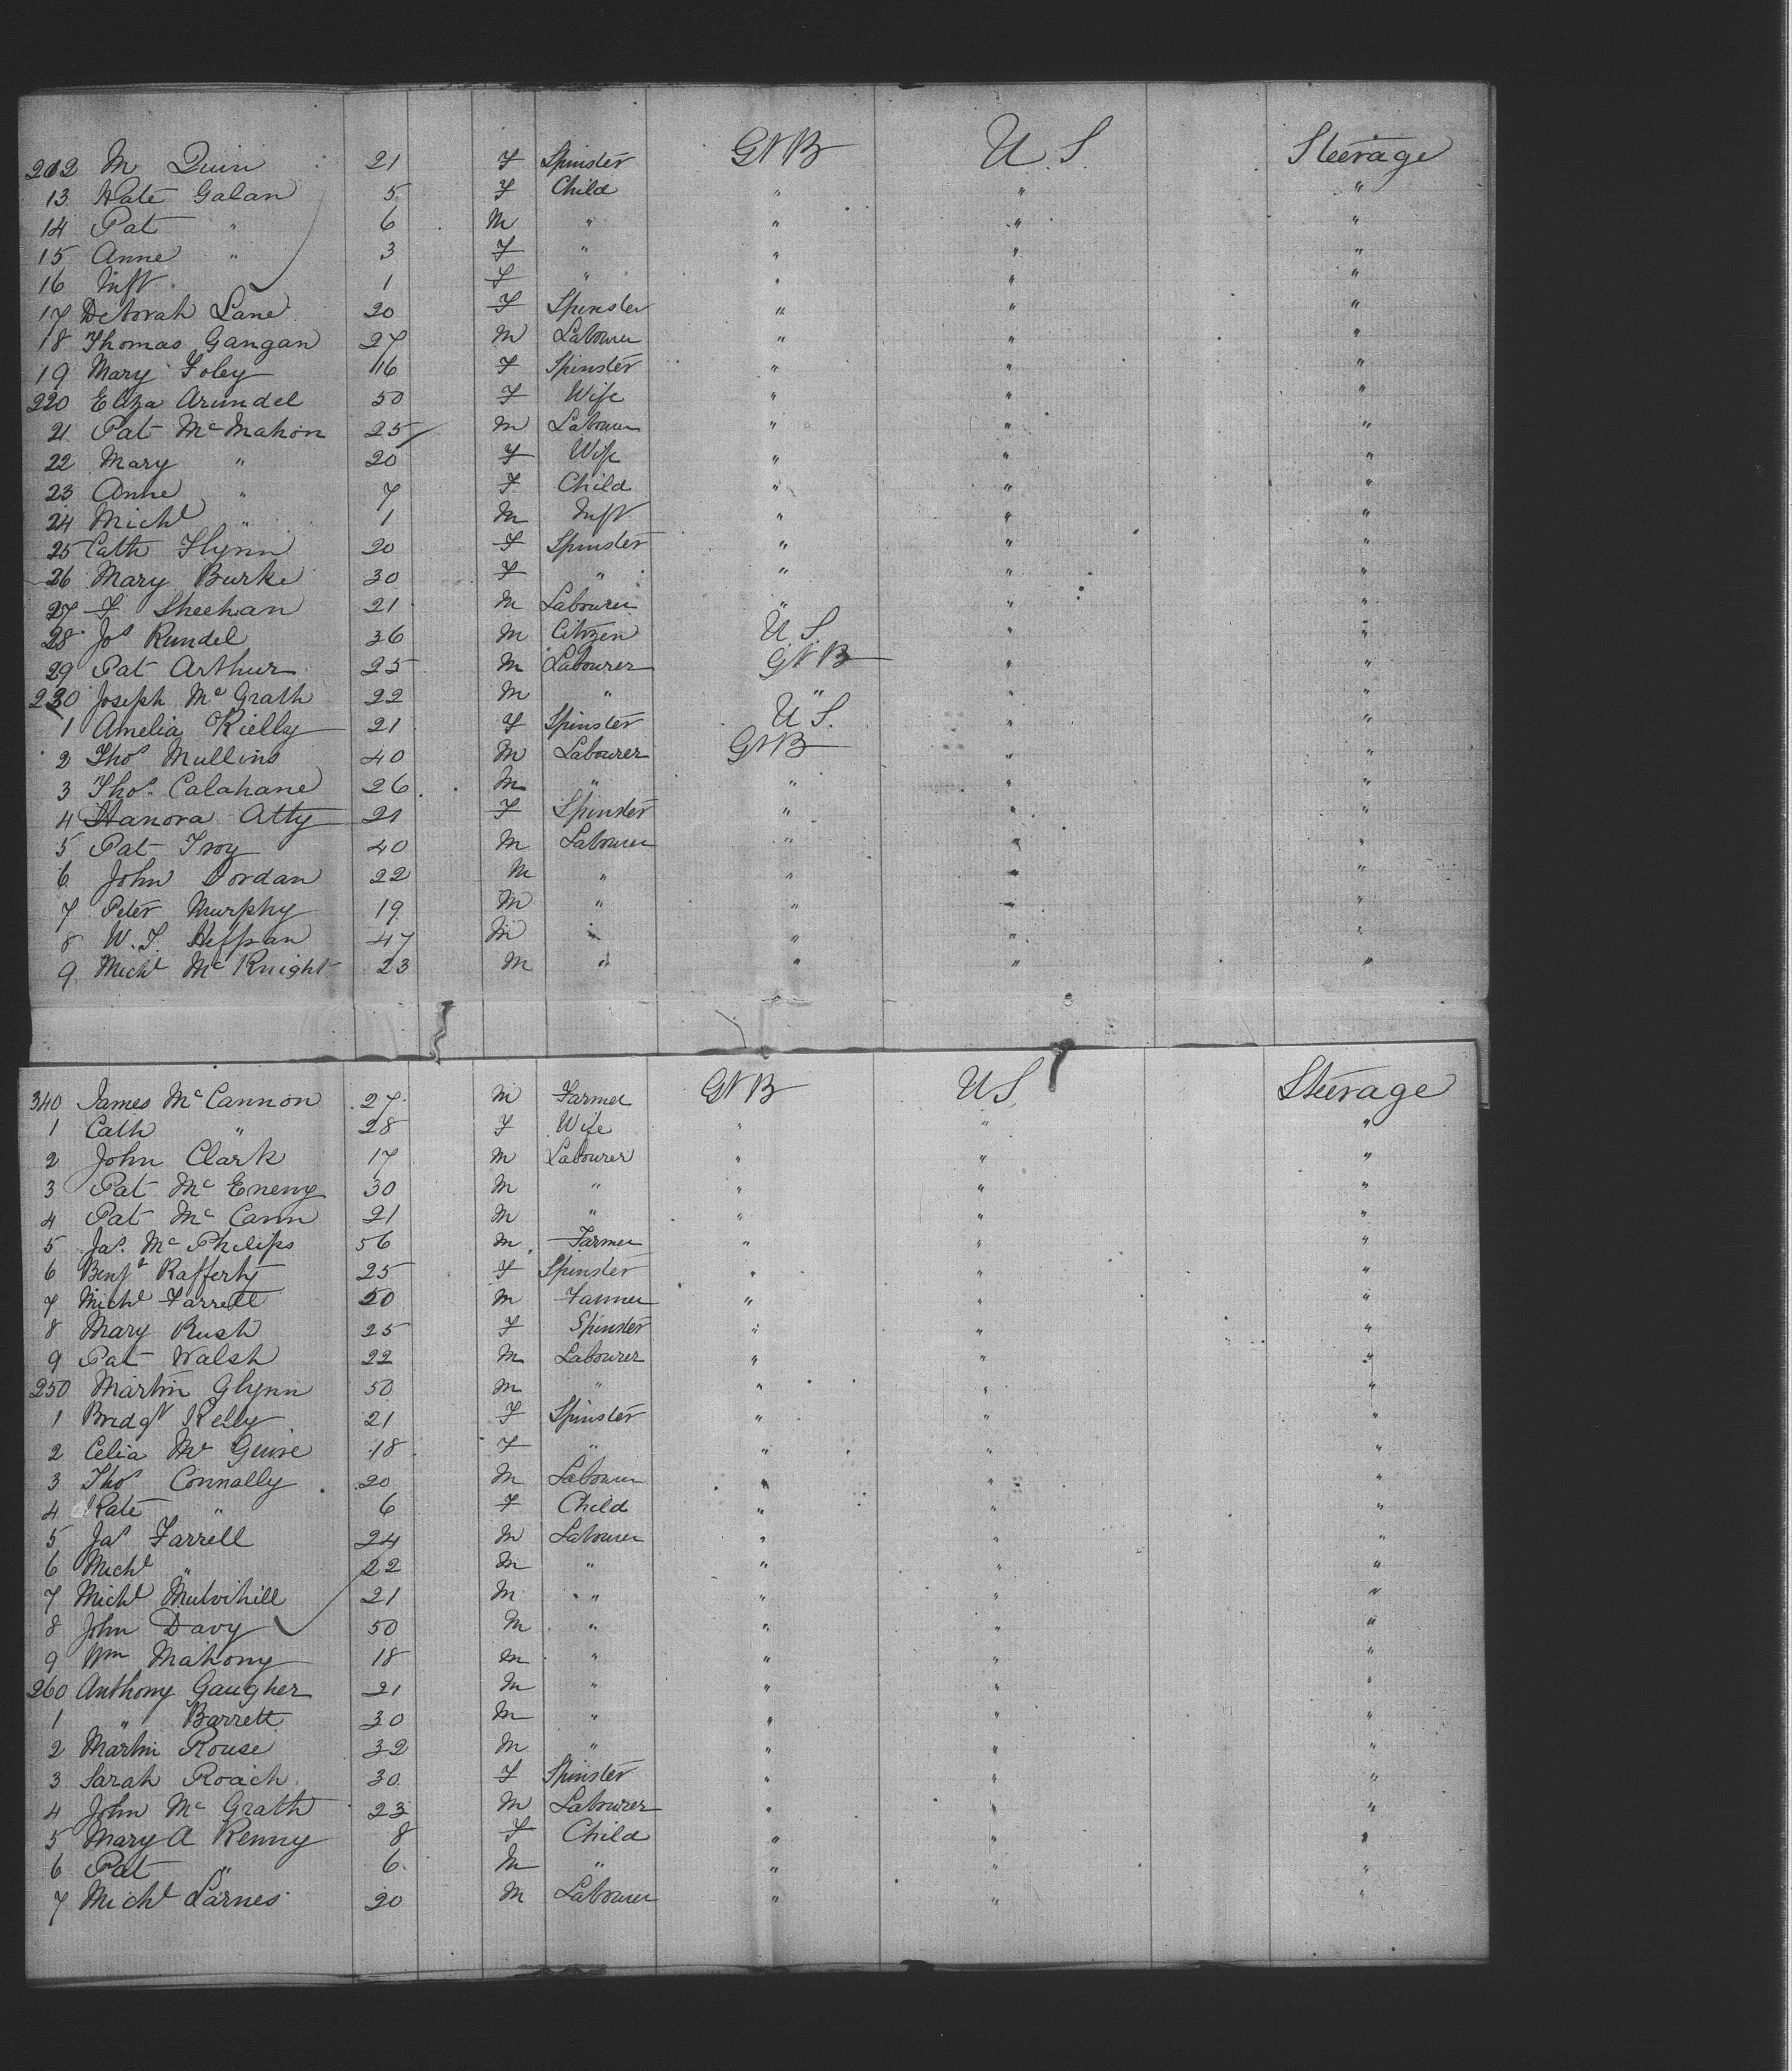 202 M Quin 21 F Spinster Gt B U. S. Steerage
13 Kate Galan 5 F Child " " "
14 Pat " 6 M " " " "
15 Anne " 3 F " " " "
16 Inft 1 F " " " "
17 Deborah Lane 20 F Spinster " " "
18 Thomas Gangan 27 M Labourer " " "
19 Mary Foley 16 F Spinster " " "
220 Eliza Arundel 50 F Wife " " "
21 Pat McMahon 25 M Labourer " " "
22 Mary " 20 F Wife " " "
23 Anne " 7 F Child " " "
24 Michl " 1 M Inft " " "
25 Cath Flynn 20 F Spinster " " "
26 Mary Burke 30 F " " " "
27 F Sheehan 21 M Labourer " " "
28 Jos Rundel 36 M Citizen U S. " "
29 Pat Arthur 25 M Labourer Gt B " "
230 Joseph McGrath 22 M " " " "
1 Amelia Rielly 21 F Spinster U S. " "
2 Thos Mullins 40 M Labourer Gt B " "
3 Thos. Calahane 26 M " " " "
4 Hanora Atty 21 F Spinster " " "
5 Pat Troy 40 M Labourer " " "
6 John Dordan 22 M " " " "
7 Peter Murphy 19 M " " " "
8 W. J. Heffran 47 M " " " "
9 Michl McKnight 23 M " " " "
340 James McCannon 27 M Farmer Gt B U S. Steerage
1 Cath " 28 F Wife " " "
2 John Clark 17 M Labourer " " "
3 Pat McEneny 30 M " " " "
4 Pat McCann 21 M " " " "
5 Jas. McPhilips 56 M Farmer " " "
6 Rafferty 25 F Spinster " " "
7 Michl Farrell 50 M Farmer " " "
8 Mary Rush 25 F Spinster " " "
9 Pat Walsh 22 M Labourer " " "
250 Martin Glynn 50 M " " " "
1 Bridgt Kelly 21 F Spinster " " "
2 Celia McGuire 18 F " " " "
3 Thos Connally 20 M Labourer " " "
4 Kate " 6 F Child " " "
5 Jas Farrell 24 M Labourer " " "
6 Michl " 22 M " " " "
7 Michl Mulvihill 21 M " " " "
8 John Davy 50 M " " " "
9 Wm Mahony 18 M " " " "
260 Anthony Gaugher 21 M " " " "
1 " Barrett 30 M " " " "
2 Martin Rouse 32 M " " " "
3 Sarah Roach 30 F Spinster " " "
4 John McGrath 23 M Labourer " " "
5 Mary A Kenny 8 F Child " " "
6 Pat " 6 M " " " "
7 Michl Larnes 20 M Labourer " " "